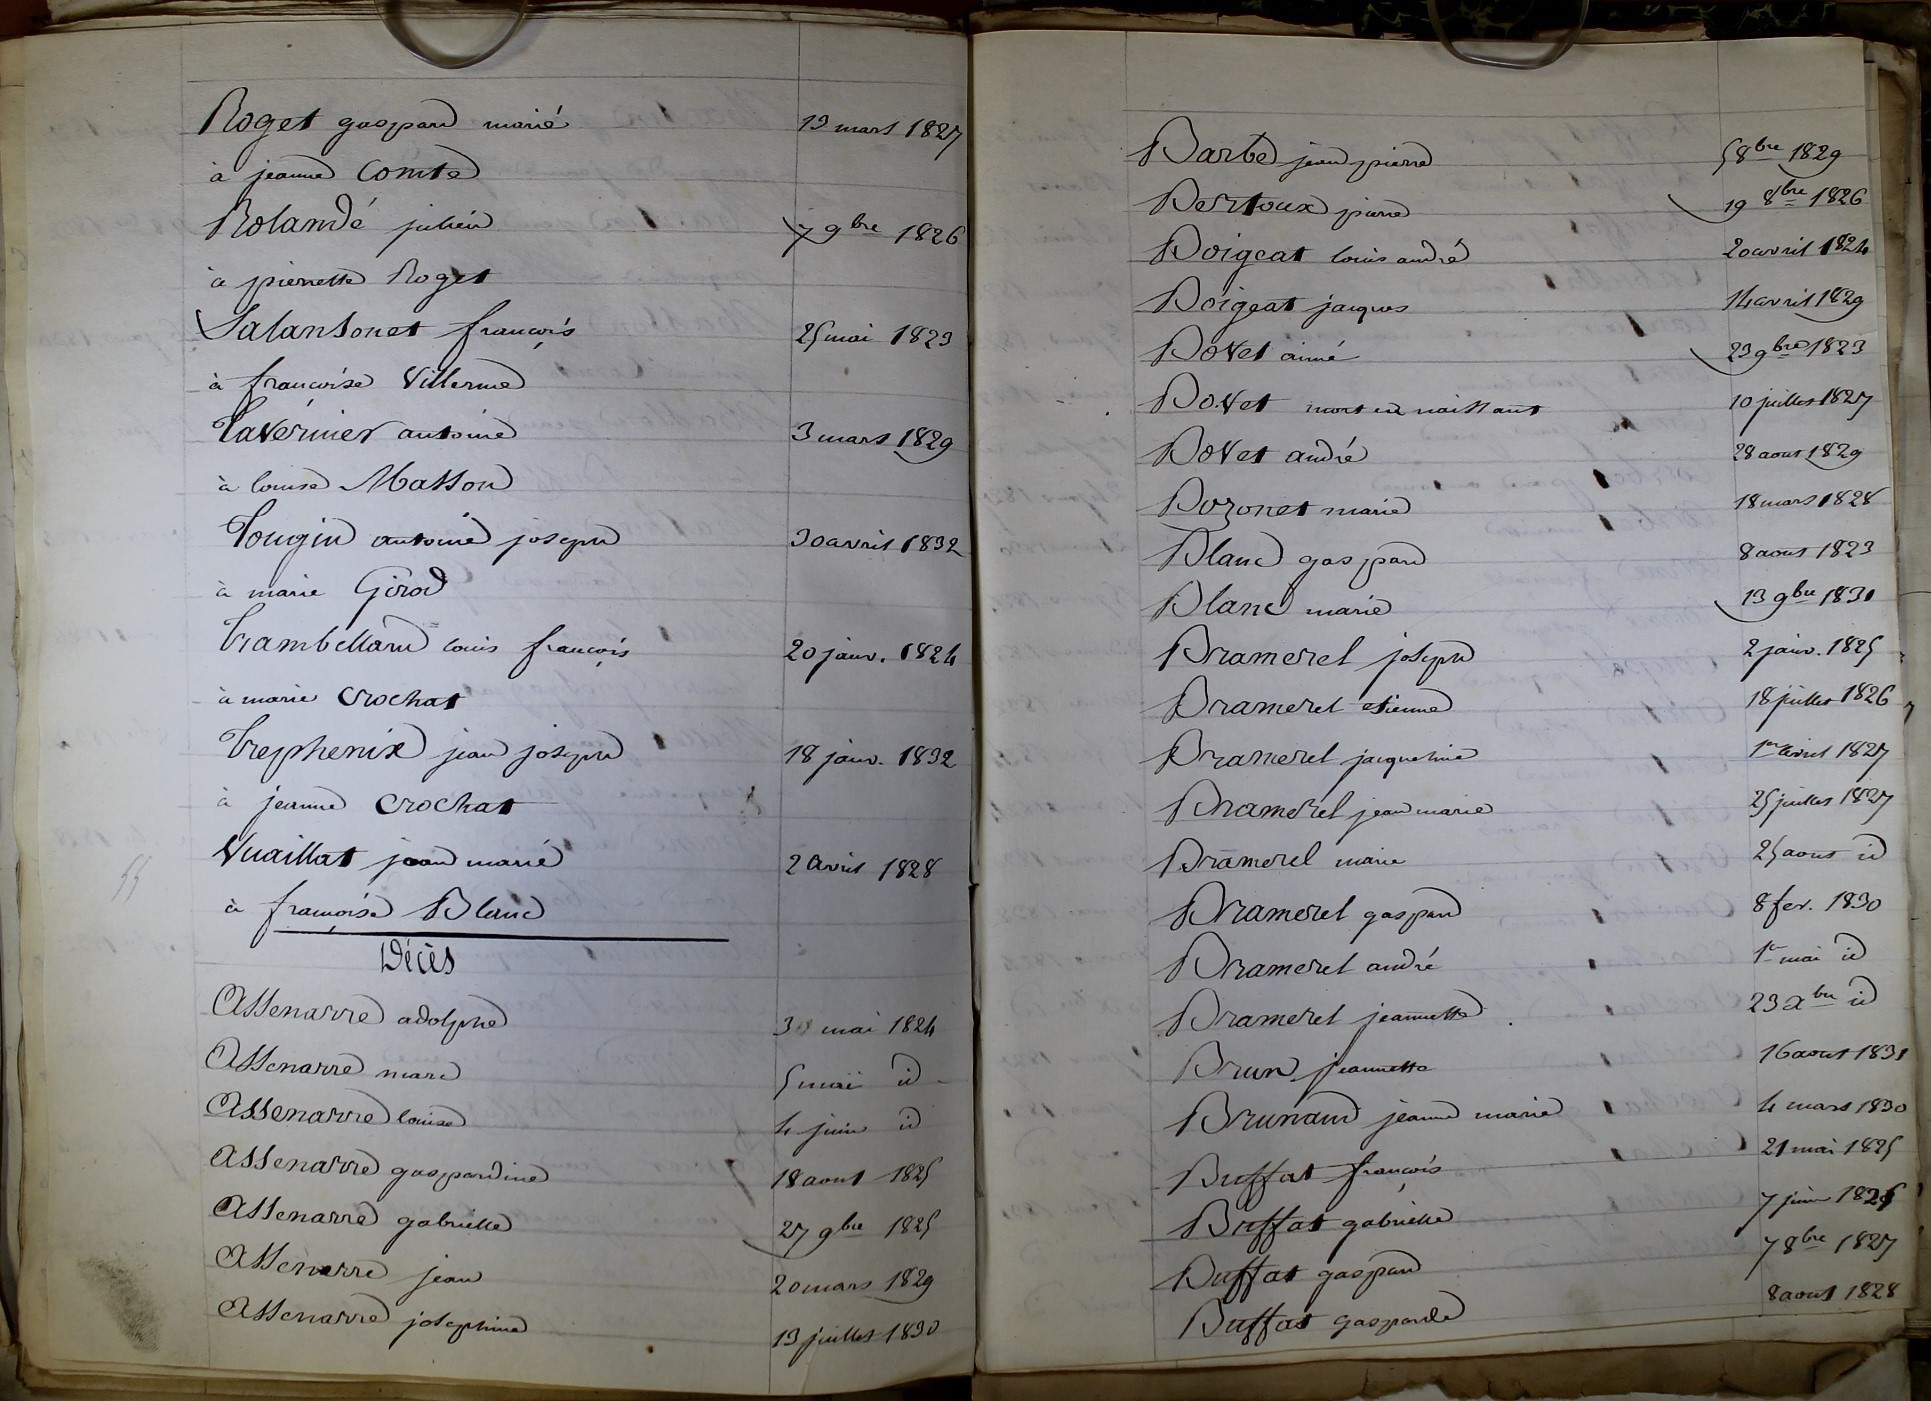 Roget gaspard marié 13 mars 1827
à jeanne Comte
Rolandé julien 7 9bre 1826
à pierrette Roget
Salansonet françois 25 mai 1823
à françoise Villerme
Tavernier antoine 3 mars 1829
à louise Masson
Tougin antoine joseph 30 avril 1832
à marie Girod
Trambelland louis françois 20 janv. 1824
à marie Crochat
Trephenix jean joseph 18 janv. 1832
à jeanne Crochat
Vuaillat jean marié 2 avril 1828
à françoise Blanc
Décès
Assenarre adolphe 3 mai 1824
Assenarre marc 5 mai id
Assenarre louise 4 juin id
Assenarre gaspardine 18 aout 1825
Assenarre gabrielle 27 9bre 1825
Assenarre jean 20 mars 1829
Assenarre josephine 13 juillet 1830
Barbe jean pierre 5 8bre 1829
Bertoux pierre 19 8bre 1826
Boigeat louis andré 20 avril 1824
Boigeat jacques 14 avril 1829
Bovet aimé 23 9bre 1823
Bovet mort en naissant 10 juillet 1827
Bovet andré 28 aout 1829
Bozonet marie 18 mars 1828
Blanc gaspard 8 aout 1823
Blanc marie 13 9bre 1831
Bramerel joseph 2 janv. 1825
Bramerel etienne 18 juillet 1826
Bramerel jacqueline 1er avril 1827
Bramerel jean marie 25 juillet 1827
Bramerel marie 25 aout id
Bramerel gaspard 8 fev. 1830
Bramerel andré 1er mai id
Bramerel jeannette 23 xbre id
Brun jeannette 16 aout 1831
Brunand jeanne marie 4 mars 1830
Buffat françois 21 mai 1825
Buffat gabrielle 7 juin 1826
Buffat gaspard 7 8bre 1827
Buffat gasparde 8 aout 1828